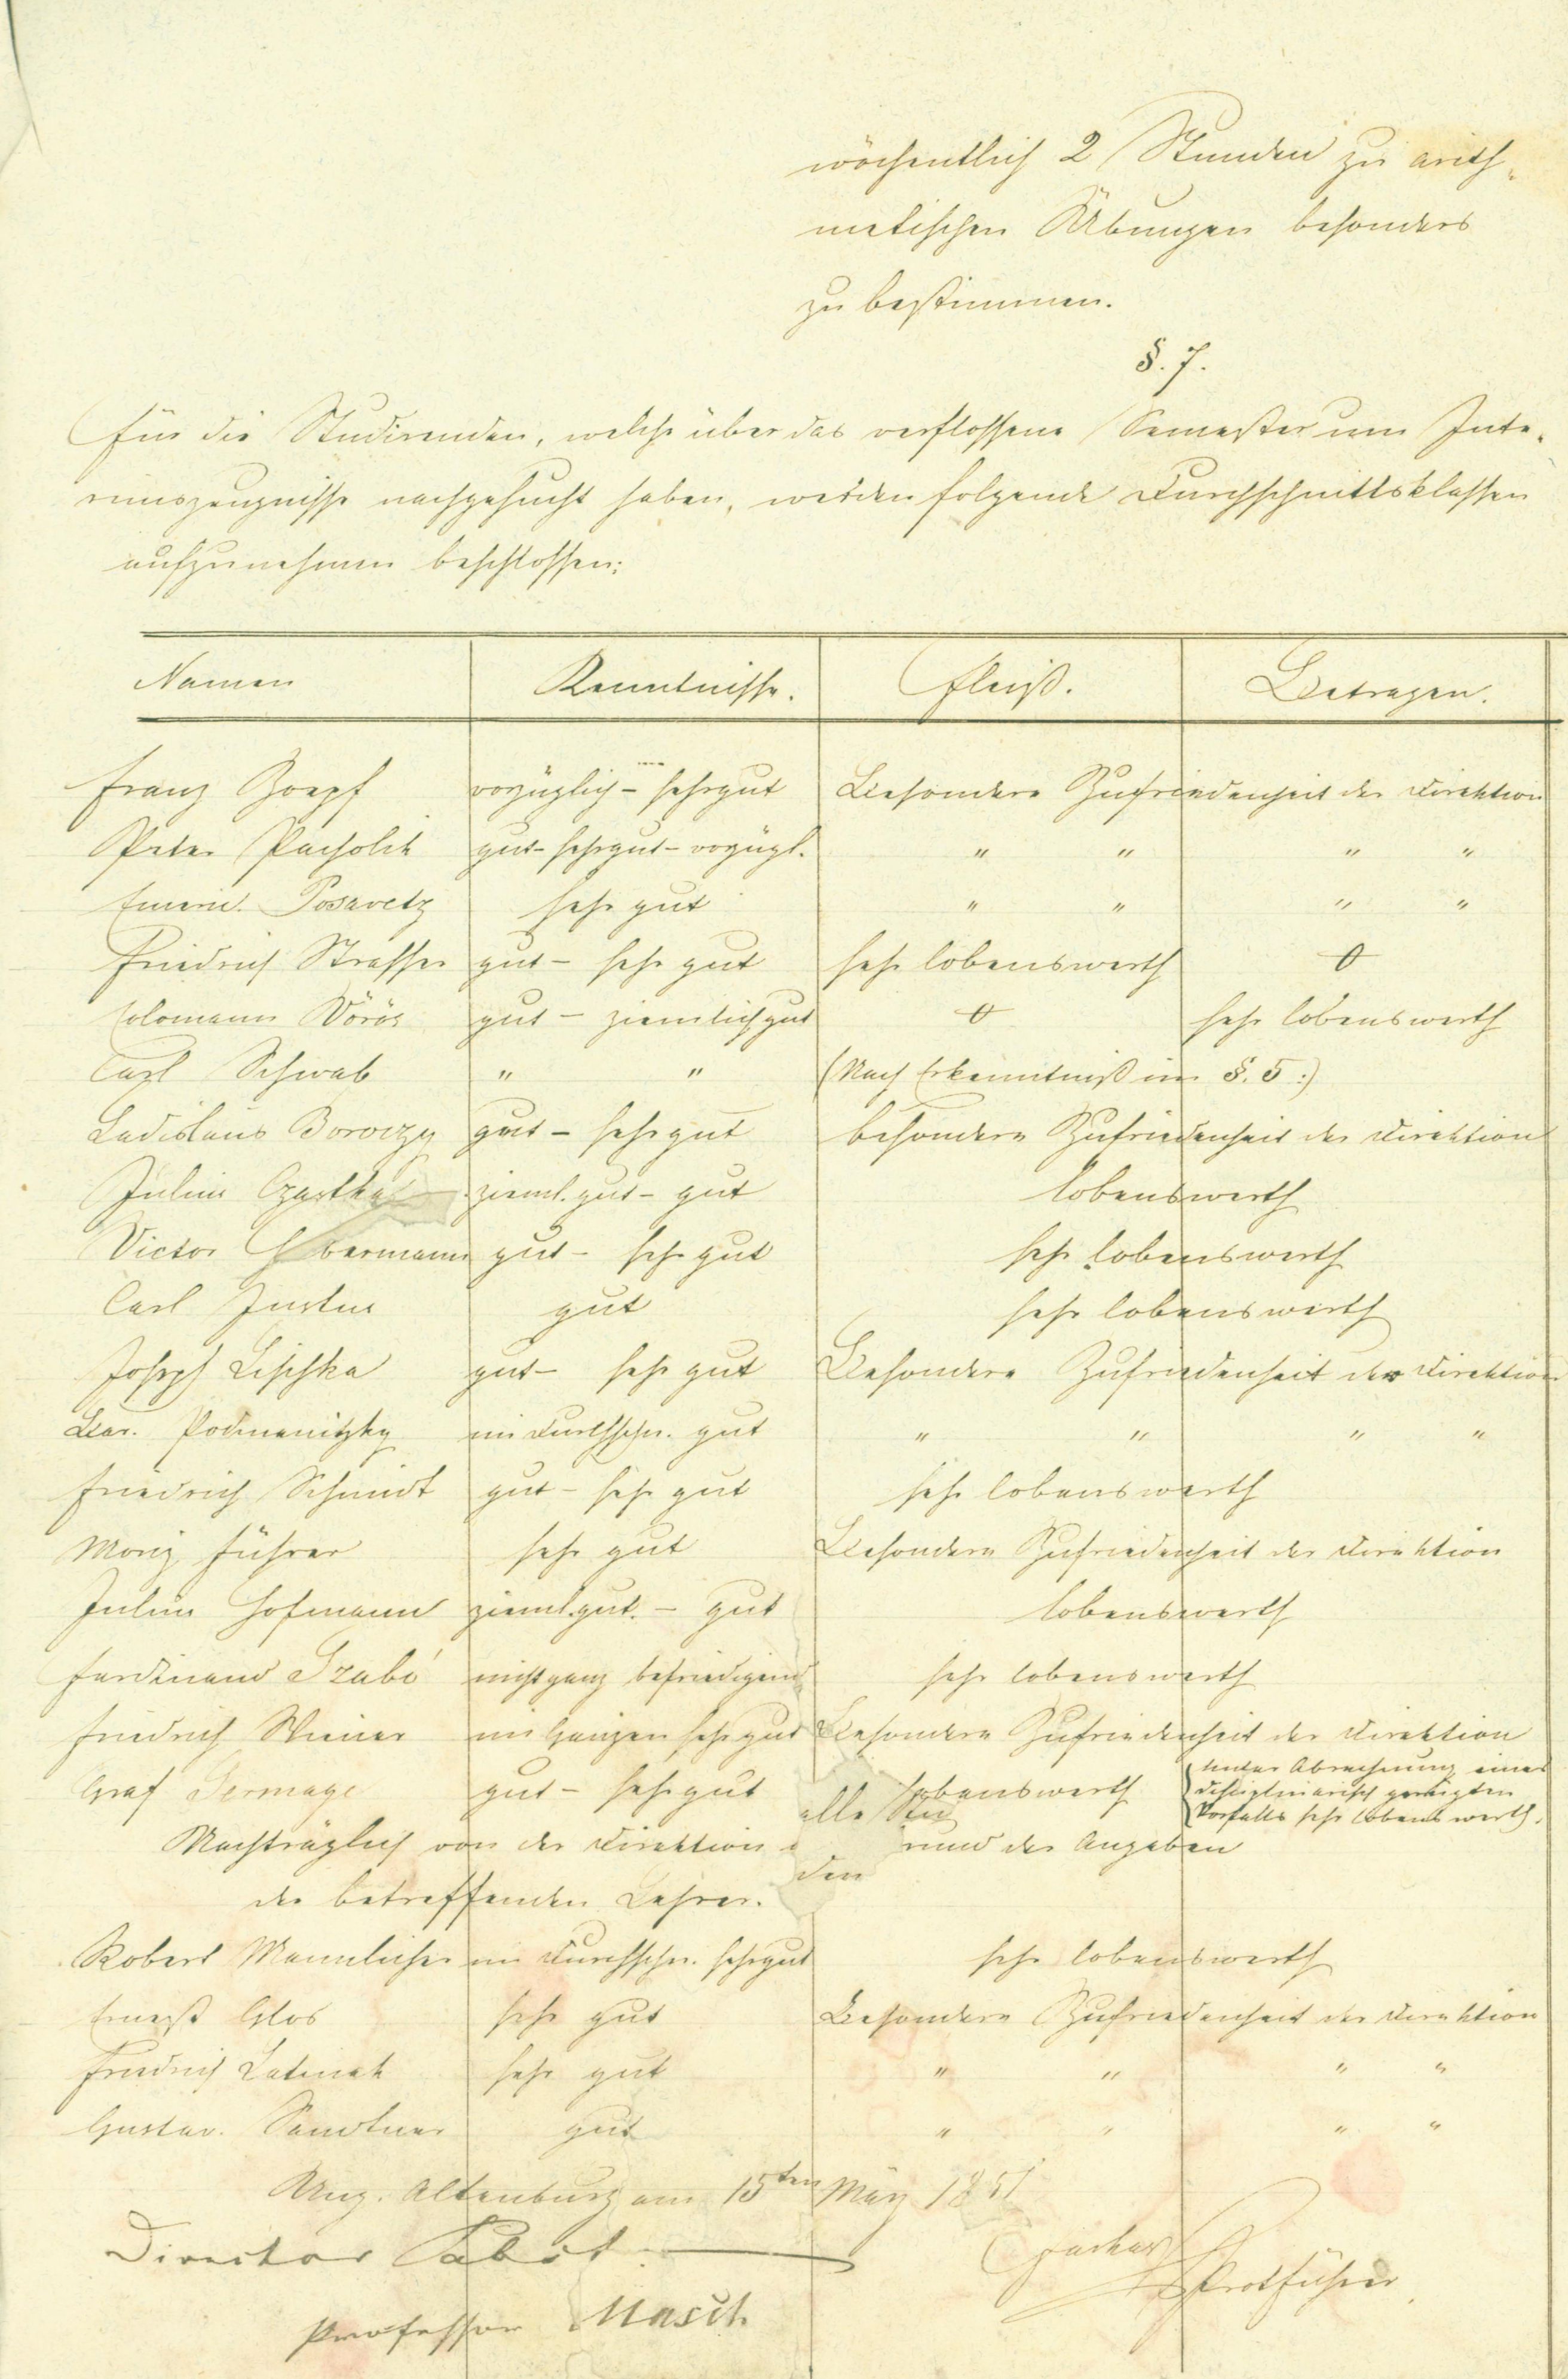 wöchentlich 2 Stunden zu arith-
metischen Übungen besonders
zu bestimmen.
§. 7.
Für die Studirenden, welche über das verflossene Semester um Inte-
rimszeugnisse nachgesucht haben, werden folgende Durchschnittsklassen
aufzunehmen beschlossen:
Namen Kenntnisse. Fleiß. Betragen.
Franz Zoepf vorzüglich – sehr gut Besondere Zufriedenheit der Direktion
Peter Pacholik gut – sehr gut – vorzügl. " " " "
Emeric. Posavetz sehr gut " " " "
Friedrich Strasser gut – sehr gut sehr lobenswerth 0
Colomann Vörös gut – ziemlich gut 0 sehr lobenswerth
Carl Schwab " " (Nach Erkenntniß im §. 5:)
Ladislaus Boroczy gut – sehr gut besondere Zufriedenheit der Direktion
Julius zieml. gut – gut lobenswerth
Victor Habermann gut – sehr gut sehr lobenswerth
Carl Justus gut sehr lobenswerth
Joseph Lischka gut – sehr gut Besondere Zufriedenheit der Direktion
Bar. Podmanitzky im Durchschn. gut " " " "
Friedrich Schmidt gut – sehr gut sehr lobenswerth
Moriz Führer sehr gut Besondere Zufriedenheit der Direktion
Julius Hofmann zieml. gut. – gut lobenswerth
Ferdinand Szabó nicht ganz befriedigend sehr lobenswerth
Friedrich Wiener im Ganzen sehr gut Besondere Zufriedenheit der Direktion
Graf Sermage gut – sehr gut lobenswerth unter Abrechnung eines
disciplinarisch gerügten
Vorfalls sehr lobenswerth.
alle
Nachträglich von der Direktion rund der Angaben
den
der betreffenden Lehrer.
Robert Mannlicher im Durchschn. sehr gut sehr lobenswerth
Ernest Glos sehr gut Besondere Zufriedenheit der Direktion
Friedrich Latinak sehr gut " " " "
Gustav. Sandtner gut " " " "
Ung. Altenburg am 15ten März 1851
Director Pabst
Protführer
Professor Masch